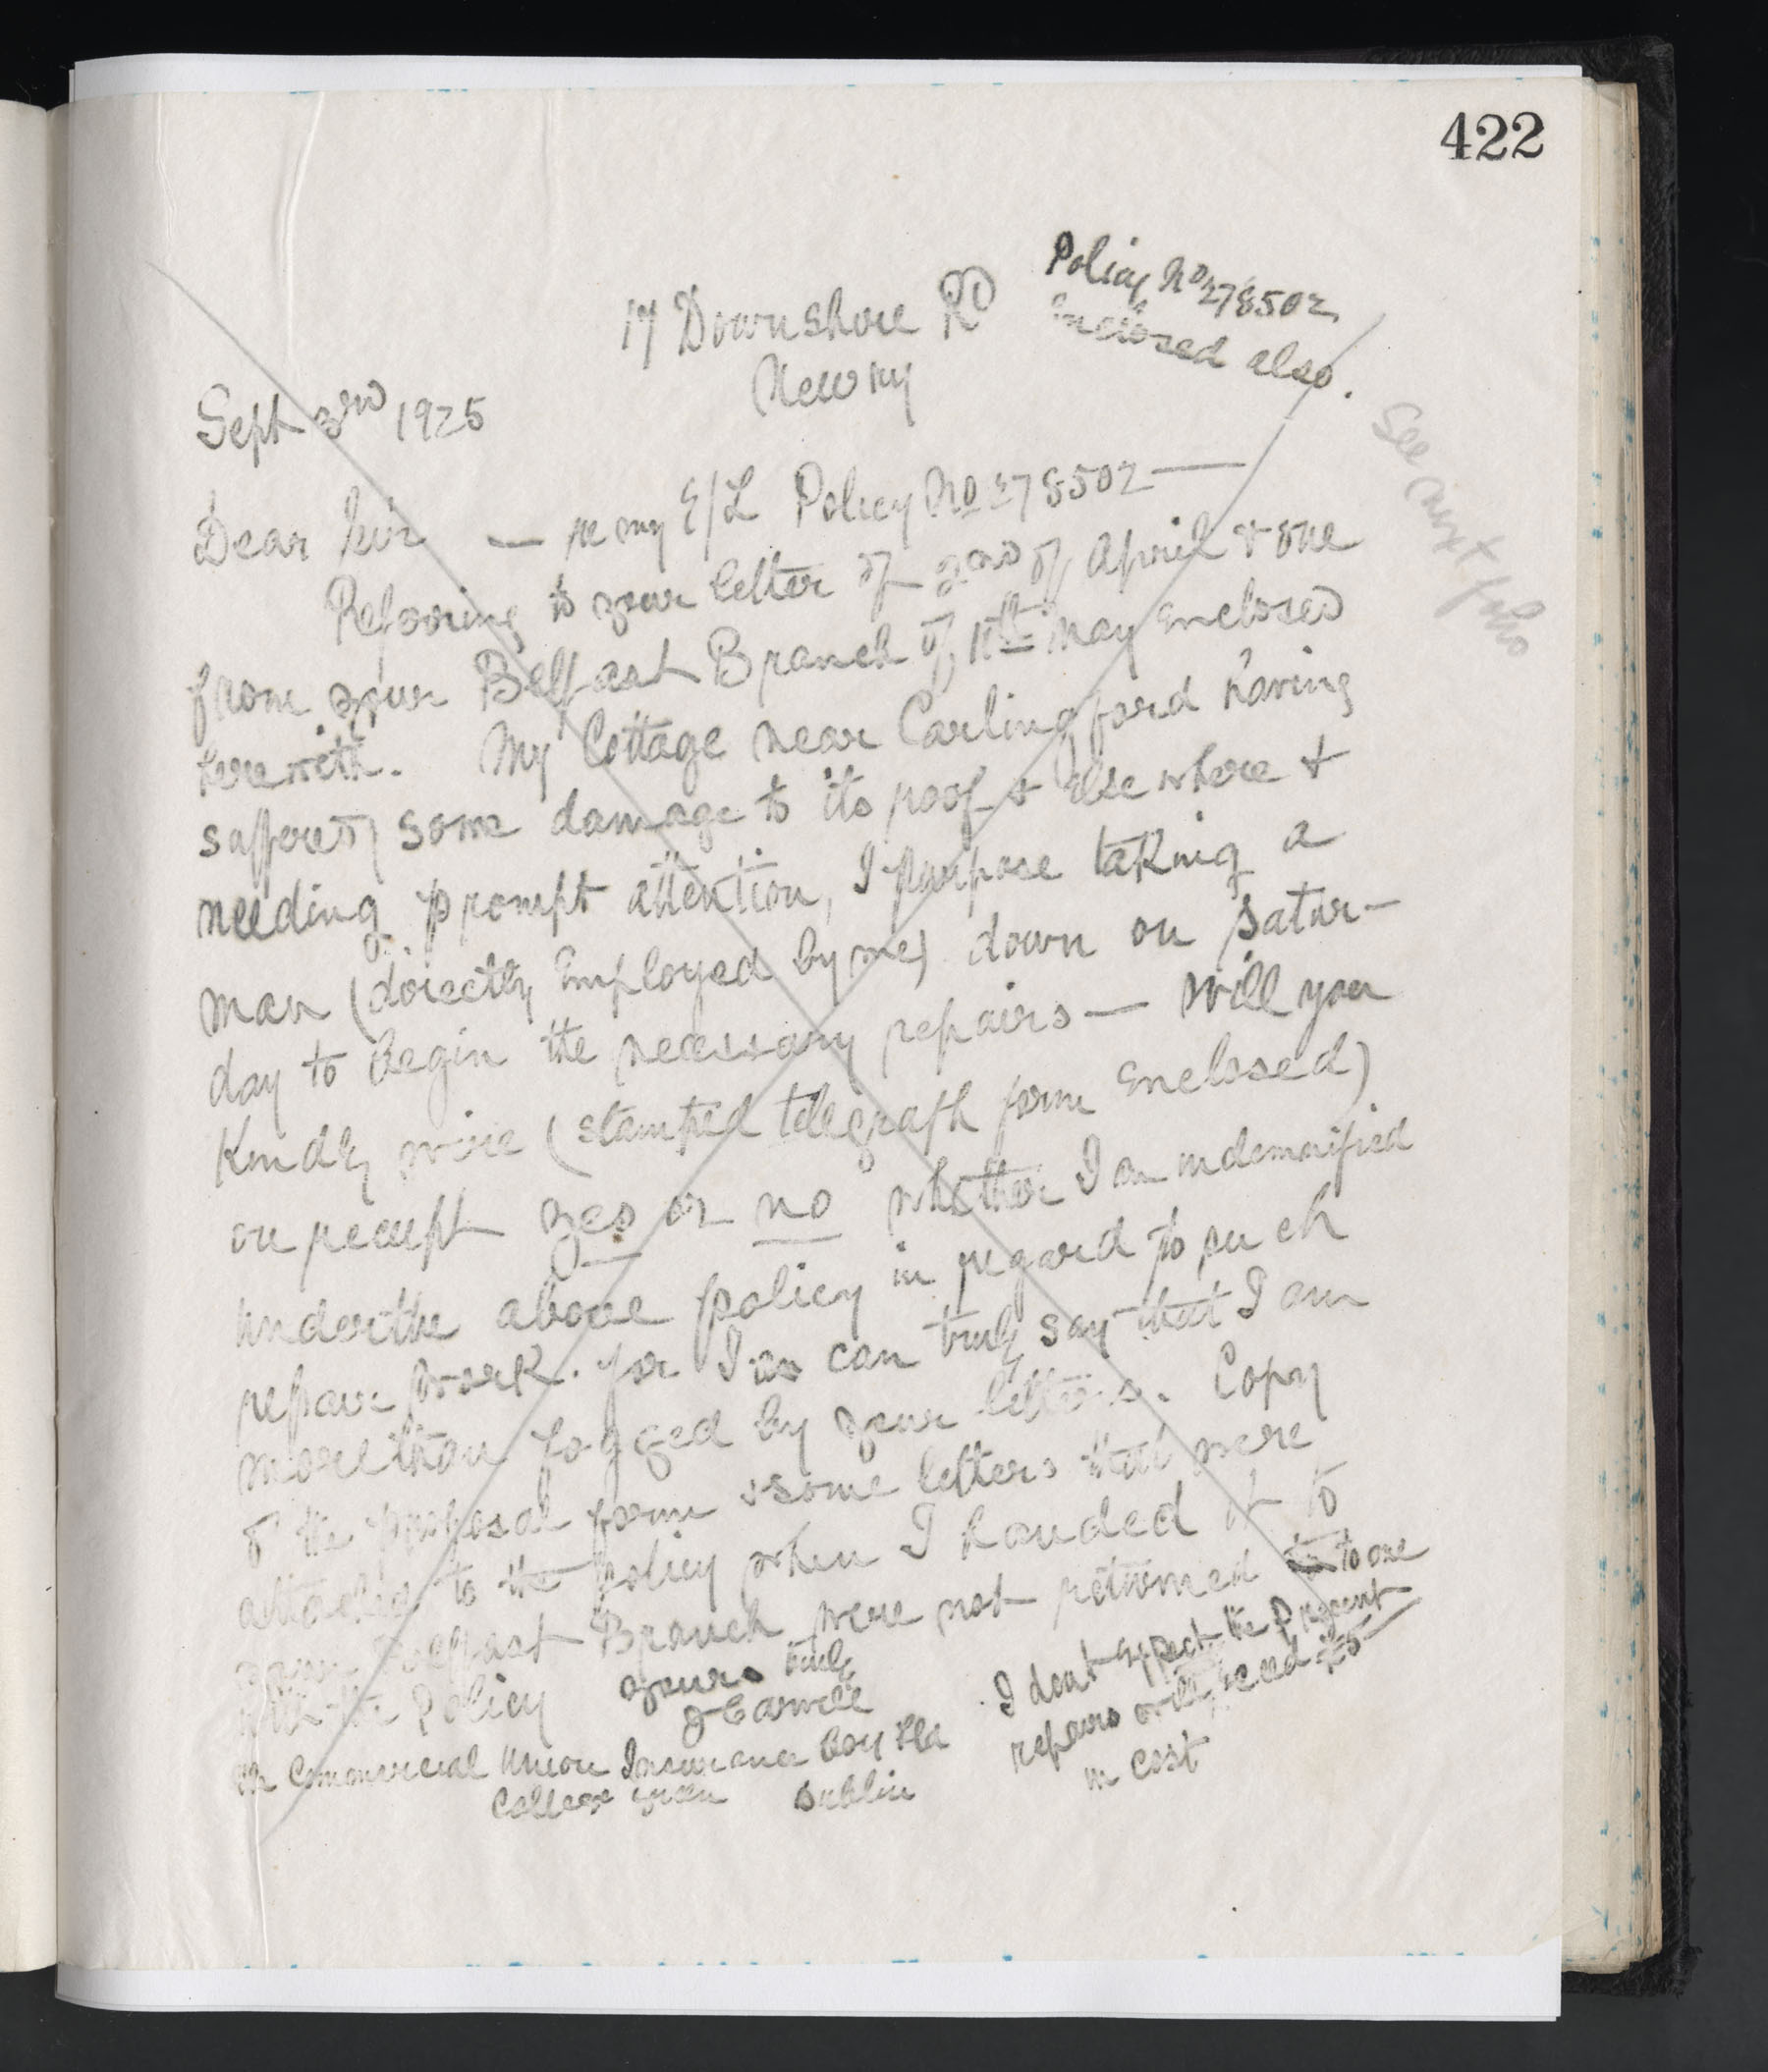 422
Policy No 278502
Enclosed also.
17 Downshire Rd
Newry
Sept 3rd 1925
See next folio
Dear Sir — re my E/L Policy No 278502 —
Referring to your letter of 2nd of April & one
from your Belfast Branch of 11th May enclosed
herewith. My Cottage near Carlingford having
suffered some damage to its roof & elsewhere &
needing prompt attention, I purpose taking a
man (directly employed by me) down on Satur-
day to begin the necessary repairs — Will you
Kindly wire (stamped telegraph form enclosed)
on receipt yes or no whether I am indemnified
under the above policy in regard to such
repair work. for I can truly say that I am
more than fogged by your letters. Copy
of the proposal form & some letters that were
attached to the policy when I handed it to
your Belfast Branch were not returned to me
with the Policy
yours truly
I dont expect the present
repairs will exceed £5
in cost
The Commercial Union Insurance Coy Ltd
College Green Dublin